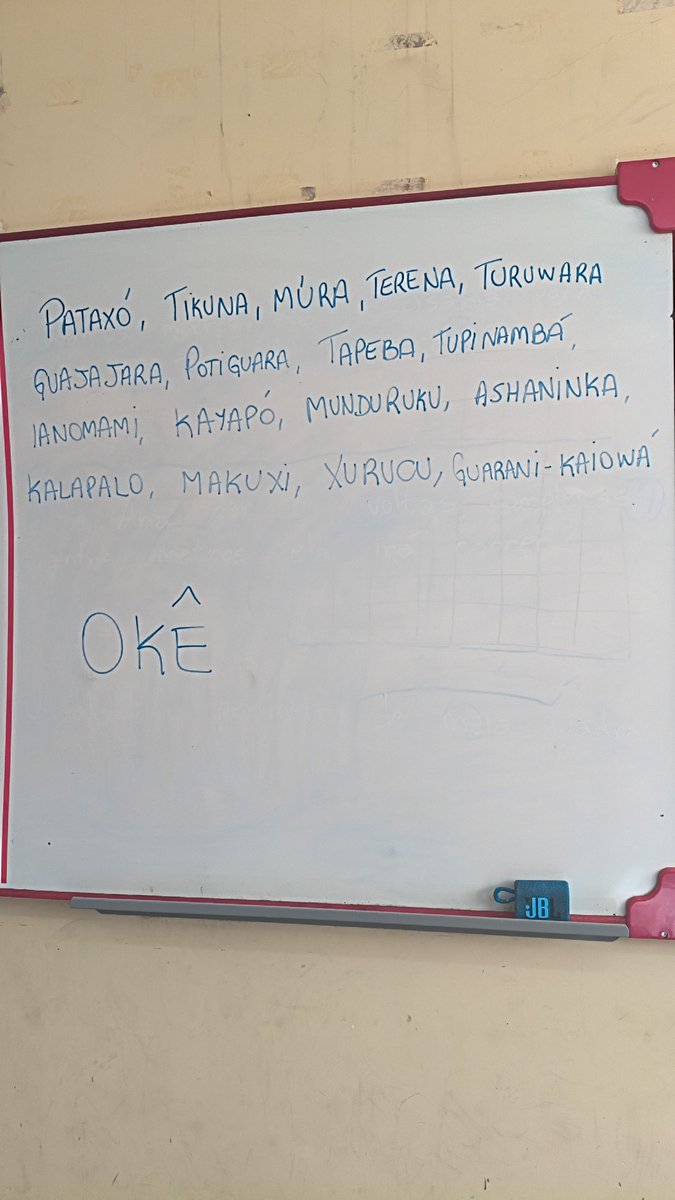 PATAXÓ, TIKUNA, MÚRA, TERENA, TURUWARA
GUAJAJARA, POTIGUARA, TAPEBA, TUPINAMBÁ,
IANOMAMI, KAYAPÓ, MUNDURUKU, ASHANINKA,
KALAPALO, MAKUXI, XURUCU, GUARANI-KAIOWÁ
OKÊ
JB